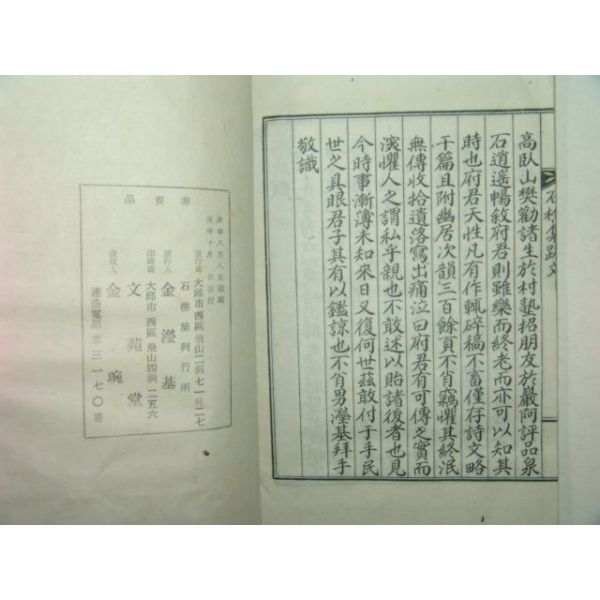 石樵集跋文
高臥山樊勸諸生於村塾招朋友於巖阿評品泉
石道遙暢敘府君則雖樂而終老而亦可以知其
時也府君天性凡有作輒碎稿不畜僅存詩文略
干篇且附幽居次韻三百餘頁不肖竊懼其終泯
無傳收拾遺落寫出痛泣曰府君有可傳之實而
演懼人之謂私乎親也不敢述以貽諸後者也見
今時事漸薄未知來日又復何世玆敢付于手民
世之具眼君子其有以鑑諒也不肖男瀅基拜手
敬識
非賣品
庚申八月 日
庚申十月 日發行
發行處 大邱市西區飛山二洞七一 二七
石樵集刊行所
發行人 金瀅基
印刷處 大邱市西區飛山四洞 二五六
文苑堂
金琬
連絡電話 三一七〇番